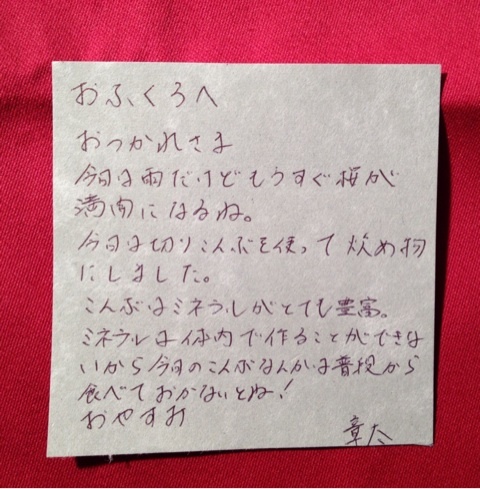 おふくろへ
おつかれさま
今日は雨だけどもうすぐ桜が
満開になるね。
今日は切りこんぶを使って炒め物
にしました。
こんぶはミネラルがとても豊富。
ミネラルは体内で作ることができな
いから今日のこんぶなんかは普段から
食べておかないとね！
おやすみ
章太